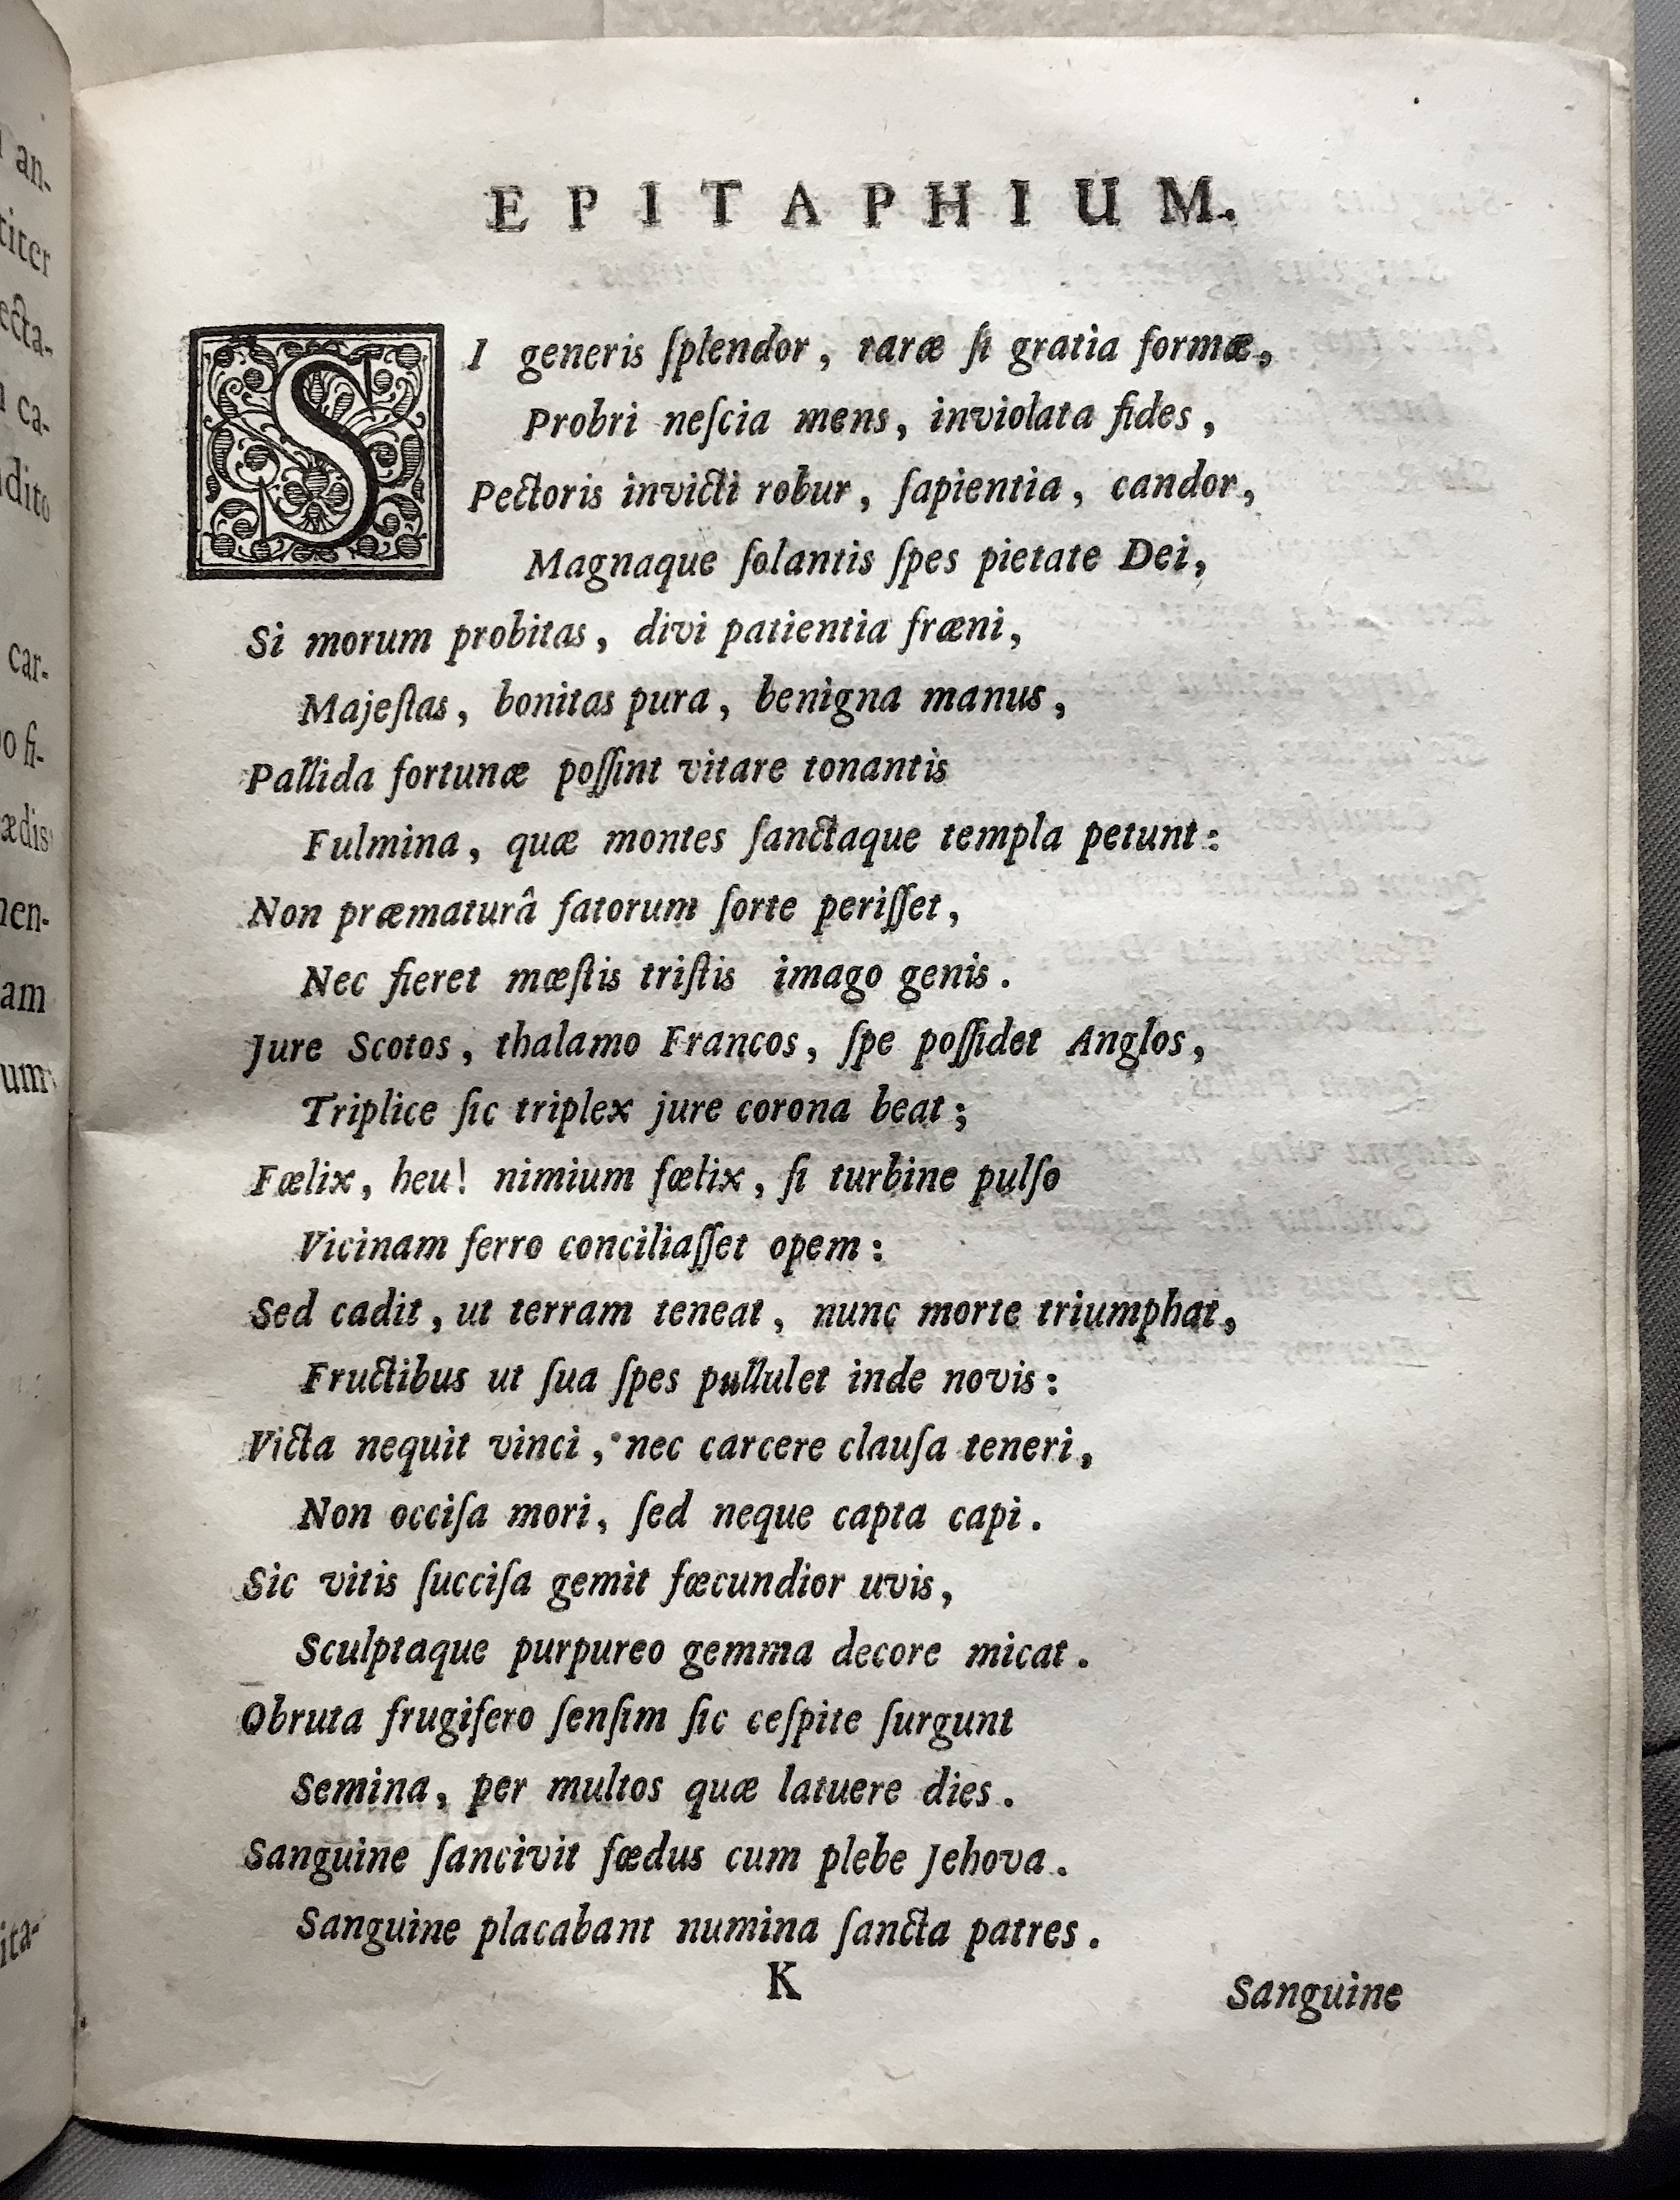 EPITAPHIUM.
SI generis ſplendor, raræ ſi gratia formæ,
Probri neſcia mens, inviolata fides,
Pectoris invicti robur, ſapientia, candor,
Magnaque ſolantis ſpes pietate Dei,
Si morum probitas, divi patientia fræni,
Majeſtas, bonitas pura, benigna manus,
Pallida fortunæ poſſint vitare tonantis
Fulmina, quæ montes ſanctaque templa petunt:
Non præmaturâ fatorum ſorte periſſet,
Nec fieret mæſtis triſtis imago genis.
Jure Scotos, thalamo Francos, ſpe poſſidet Anglos,
Triplice ſic triplex jure corona beat;
Fœlix, heu! nimium fœlix, ſi turbine pulſo
Vicinam ferro conciliaſſet opem:
Sed cadit, ut terram teneat, nunc morte triumphat,
Fructibus ut ſua ſpes pullulet inde novis:
Victa nequit vinci, nec carcere clauſa teneri,
Non occiſa mori, ſed neque capta capi.
Sic vitis ſucciſa gemit fœcundior uvis,
Sculptaque purpureo gemma decore micat.
Obruta frugifero ſenſim ſic ceſpite ſurgunt
Semina, per multos quæ latuere dies.
Sanguine ſancivit fœdus cum plebe Jehova.
Sanguine placabant numina ſancta patres.
K
Sanguine